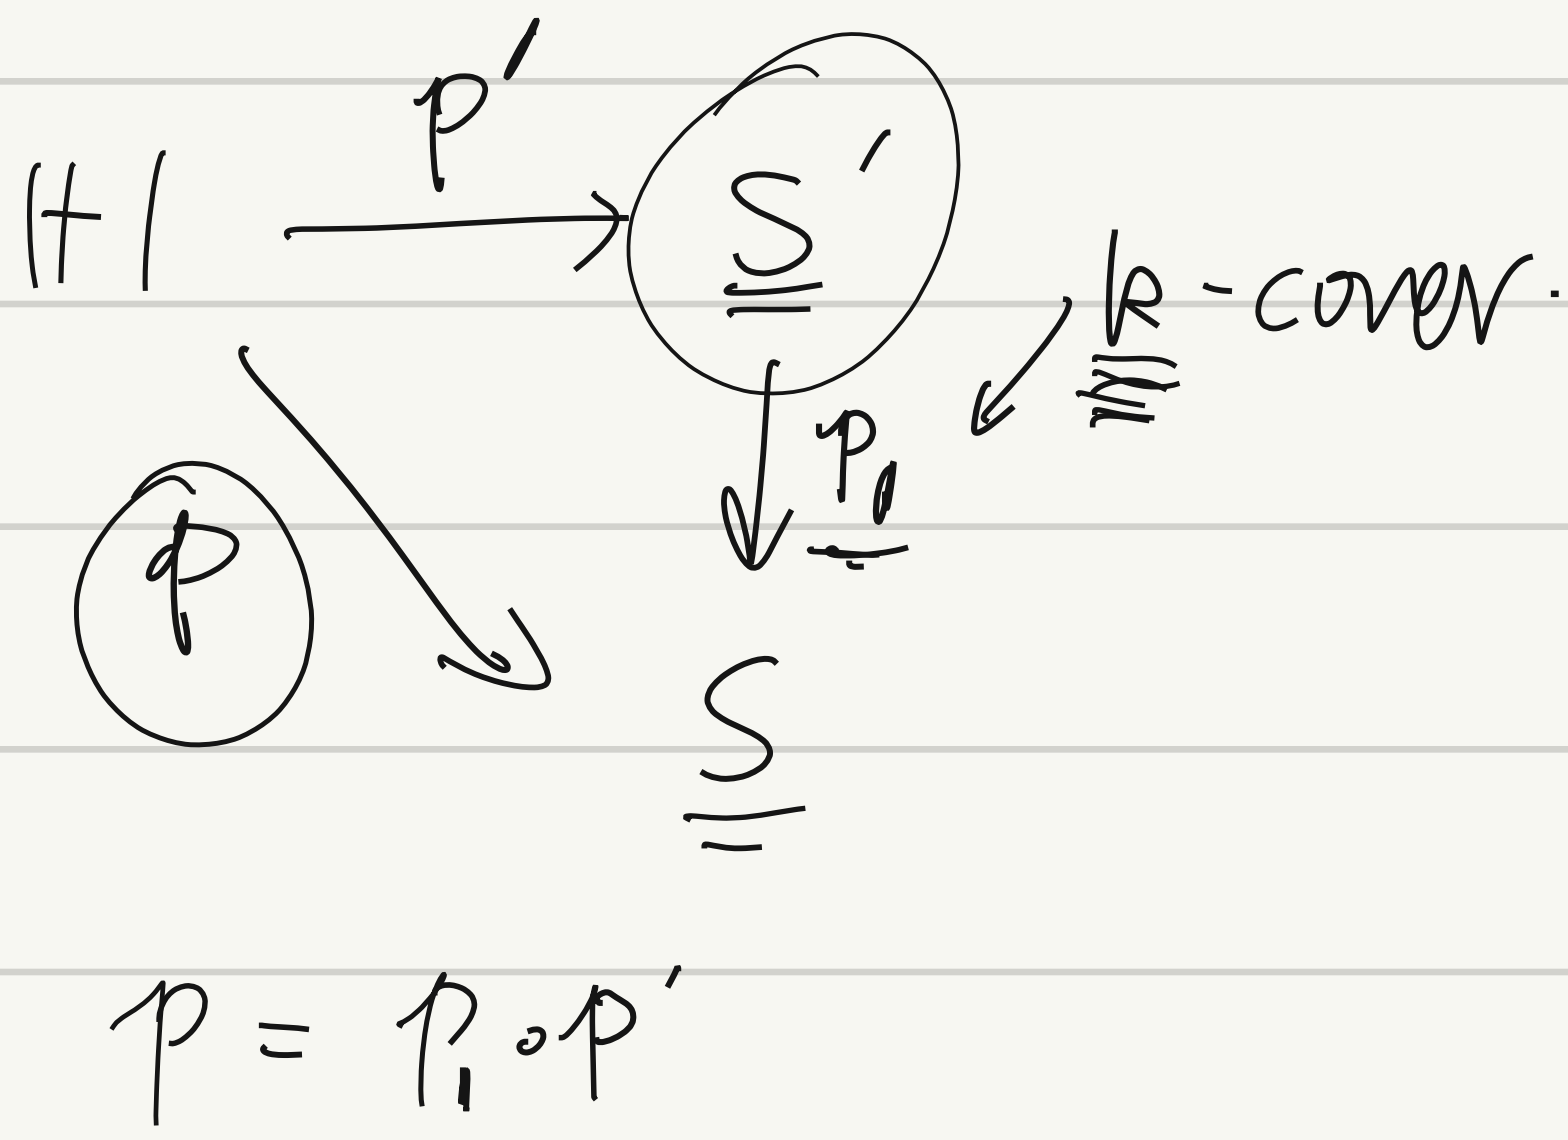 p'
H S'
k-cover.
p₁
p
S
p = p₁ ∘ p'